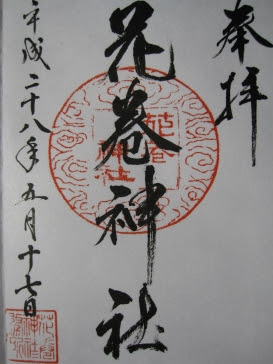 奉拝
花巻神社
平成二十八年五月十七日
花巻神社